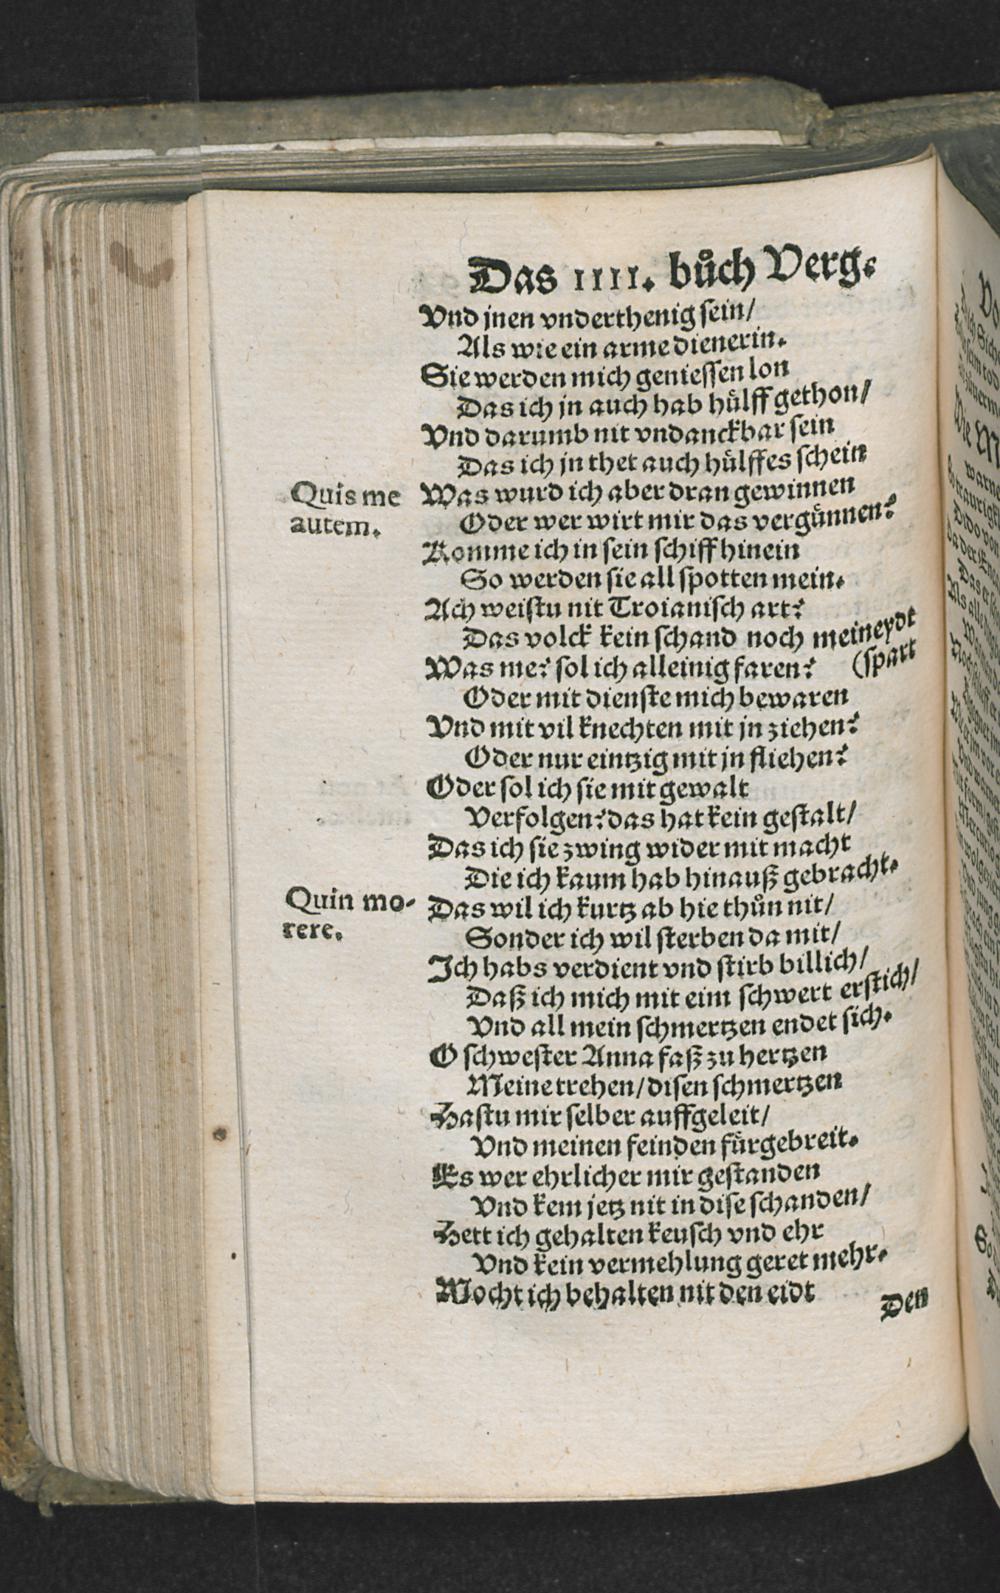 Das IIII. bůch Verg.
Vnd jnen vnderthenig sein/
Als wie ein arme dienerin.
Sie werden mich geniessen lon
Das ich jn auch hab hülff gethon/
Vnd darumb nit vndanckbar sein
Das ich jn thet auch hülffes schein
Quis me autem.
Was wurd ich aber dran gewinnen
Oder wer wirt mir das vergünnen?
Komme ich in sein schiff hinein
So werden sie all spotten mein.
Ach weistu nit Troianisch art?
Das volck kein schand noch meineydt
(spart
Was me? sol ich alleinig faren?
Oder mit dienste mich bewaren
Vnd mit vil knechten mit jn ziehen?
Oder nur eintzig mit jn fliehen?
Oder sol ich sie mit gewalt
Verfolgen? das hat kein gestalt/
Das ich sie zwing wider mit macht
Die ich kaum hab hinauß gebracht.
Quin mo-
rere.
Das wil ich kurtz ab hie thůn nit/
Sonder ich wil sterben da mit/
Ich habs verdient vnd stirb billich/
Daß ich mich mit eim schwert erstich/
Vnd all mein schmertzen endet sich.
O schwester Anna faß zu hertzen
Meine trehen/ disen schmertzen
Hastu mir selber auffgeleit/
Vnd meinen feinden fürgebreit.
Es wer ehrlicher mir gestanden
Vnd kem jetz nit in dise schanden/
Hett ich gehalten keusch vnd ehr
Vnd kein vermehlung geret mehr.
Mocht ich behalten nit den eidt
Den